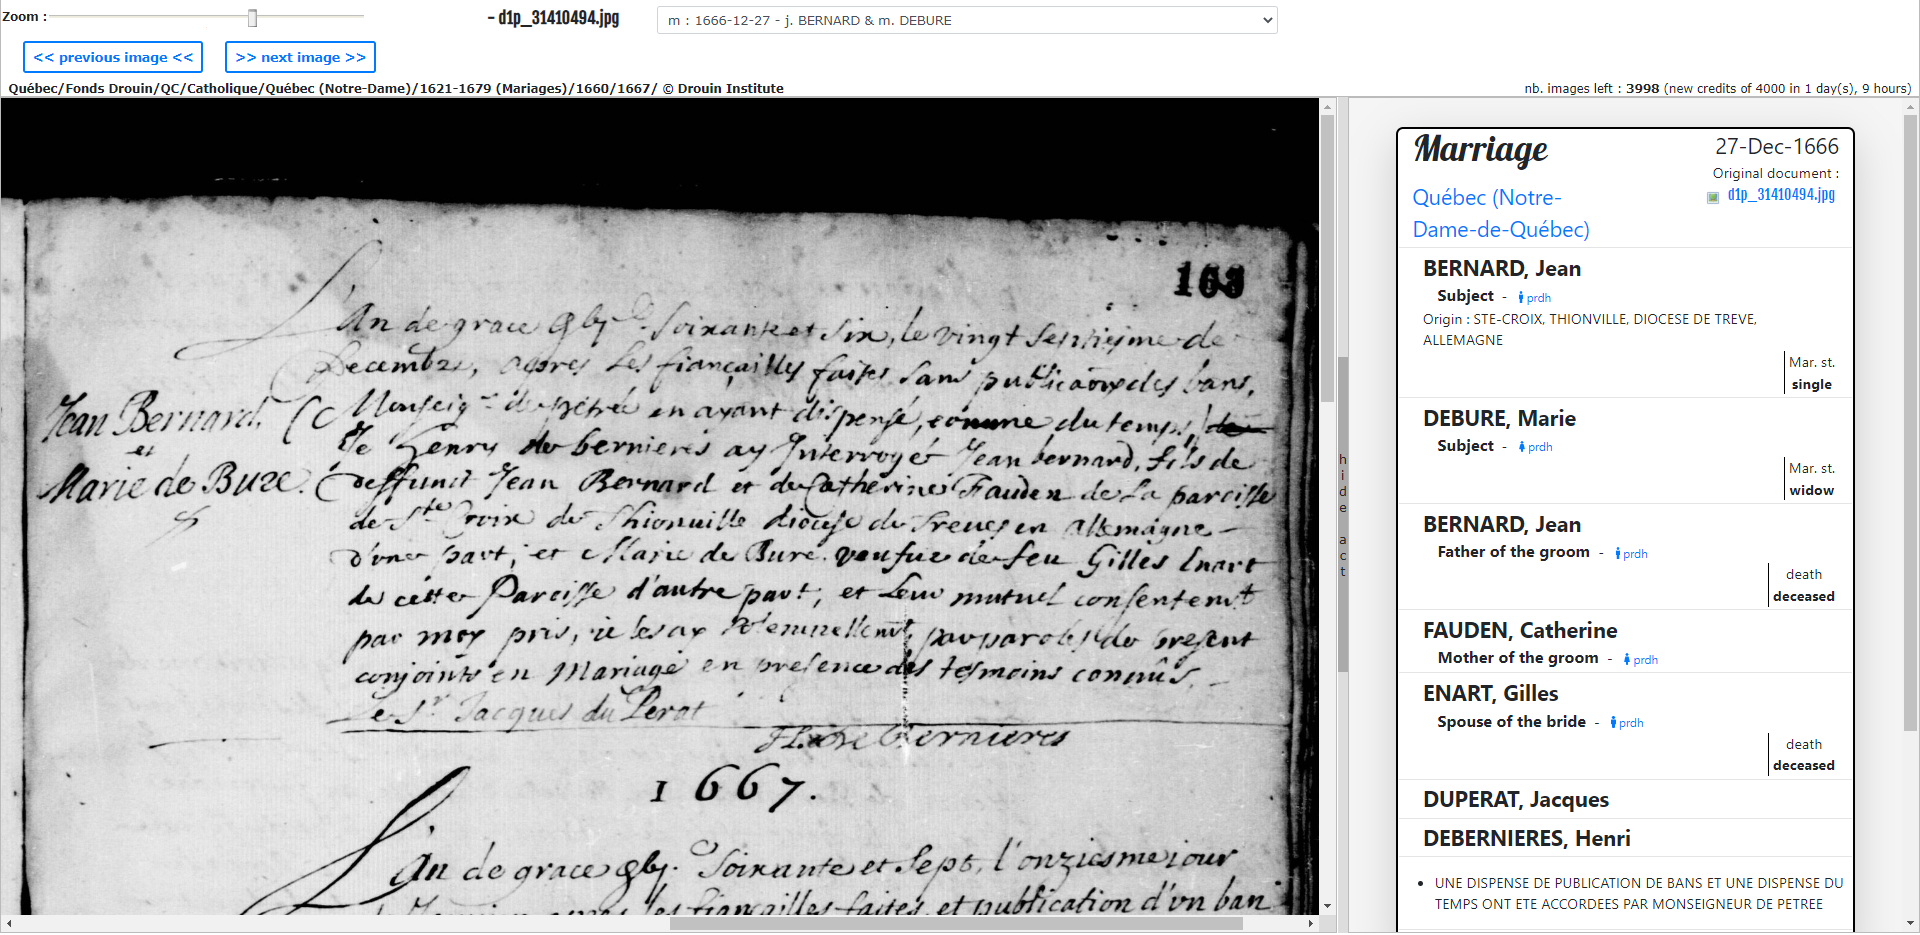 Zoom :
– d1p_31410494.jpg
m : 1666-12-27 - j. BERNARD & m. DEBURE
<< previous image <<
>> next image >>
Québec/Fonds Drouin/QC/Catholique/Québec (Notre-Dame)/1621-1679 (Mariages)/1660/1667/ © Drouin Institute
nb. images left : 3998 (new credits of 4000 in 1 day(s), 9 hours)
163
L'An de grace Soixante et six, le vingt septiesme de
Decembre, apres les fiançailles faites sans publicaõn des bans,
Monseigr de petrée en ayant dispensé, comme du temps,
Je Henry de bernieres ay Interrogé Jean bernard, fils de
deffunct Jean Bernard et de Catherine Fauden de La paroisse
de Ste Croix de Thionville diocese de Treves en allemagne
d'une part, et Marie de Bure veufue de feu Gilles Enart
de cette Paroisse d'autre part, et Leur mutuel consentemt
par moy pris, ie les ay solemnellemt par paroles de present
conjoints en Mariage en presence des tesmoins connûs,
Le Sr Jacques du Perat
H. de Bernieres
Jean Bernard,
et
Marie de Bure.
1667.
L'An de grace Soixante et sept, l'onziesme iour
les fiançailles faites, et publication d'vn ban
hide act
Marriage
27-Dec-1666
Original document :
d1p_31410494.jpg
Québec (Notre-
Dame-de-Québec)
BERNARD, Jean
Subject - prdh
Origin : STE-CROIX, THIONVILLE, DIOCESE DE TREVE,
ALLEMAGNE
Mar. st.
single
DEBURE, Marie
Subject - prdh
Mar. st.
widow
BERNARD, Jean
Father of the groom - prdh
death
deceased
FAUDEN, Catherine
Mother of the groom - prdh
ENART, Gilles
Spouse of the bride - prdh
death
deceased
DUPERAT, Jacques
DEBERNIERES, Henri
• UNE DISPENSE DE PUBLICATION DE BANS ET UNE DISPENSE DU
TEMPS ONT ETE ACCORDEES PAR MONSEIGNEUR DE PETREE